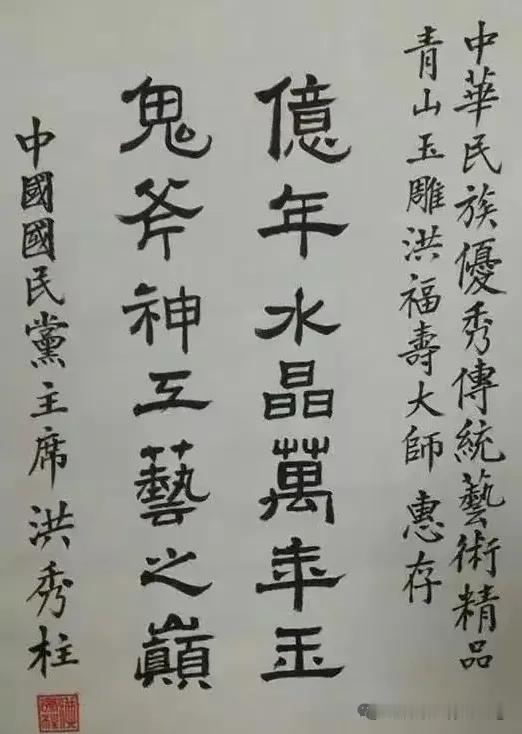 中華民族優秀傳統藝術精品
青山玉雕洪福壽大師 惠存
億年水晶萬年玉
鬼斧神工藝之巔
中國國民黨主席洪秀柱